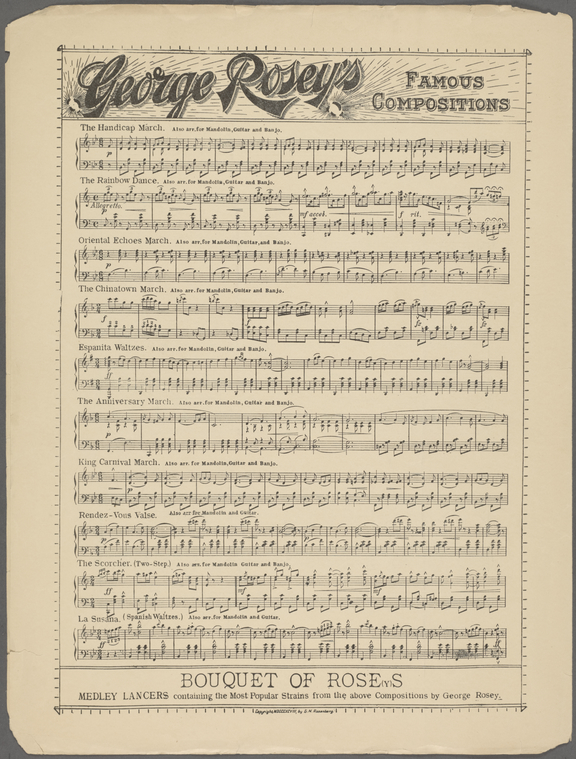 George Rosey's
FAMOUS
COMPOSITIONS
The Handicap March. Also arr. for Mandolin, Guitar and Banjo.
p
The Rainbow Dance. Also arr. for Mandolin, Guitar and Banjo.
Allegretto.
mf accel. f rit.
Oriental Echoes March. Also arr. for Mandolin, Guitar, and Banjo.
p
The Chinatown March. Also arr. for Mandolin, Guitar and Banjo.
f
Espanita Waltzes. Also arr. for Mandolin, Guitar and Banjo.
ff
The Anniversary March. Also arr. for Mandolin, Guitar and Banjo.
p
King Carnival March. Also arr. for Mandolin, Guitar and Banjo.
p
Rendez-Vous Valse. Also arr. for Mandolin and Guitar.
p
The Scorcher. (Two-Step.) Also arr. for Mandolin Guitar and Banjo.
ff mf
La Susana. (Spanish Waltzes.) Also arr. for Mandolin and Guitar.
ff
BOUQUET OF ROSE(Y)S
MEDLEY LANCERS containing the Most Popular Strains from the above Compositions by George Rosey.